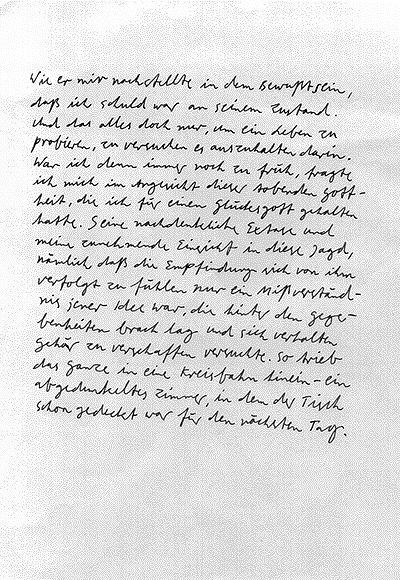 Wie er mir nachstellte in dem Bewußtsein,
daß ich schuld war an seinem Zustand.
Und das alles doch nur, um ein Leben zu
probieren, zu versuchen es auszuhalten darin.
War ich denn immer noch zu früh, fragte
ich mich im Angesicht dieser tobenden Gott-
heit, die ich für einen Glücksgott gehalten
hatte. Seine nachdenkliche Extase und
meine zunehmende Einsicht in diese Jagd,
nämlich daß die Empfindung sich von ihm
verfolgt zu fühlen nur ein Mißverständ-
nis jener Idee war, die hinter den Gege-
benheiten brach lag und sich verhalten
Gehör zu verschaffen versuchte. So trieb
das Ganze in eine Kreisbahn hinein – ein
abgedunkeltes Zimmer, in dem der Tisch
schon gedeckt war für den nächsten Tag.